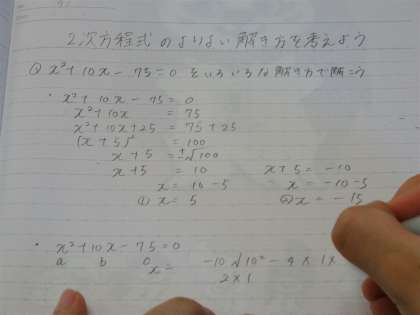 2次方程式のよりよい解き方を考えよう
Q x²+10x-75=0 をいろいろな解き方で解こう
・x²+10x-75=0
x²+10x =75
x²+10x+25=75+25
(x+5)²=100
x+5=±√100
x+5=10 x+5=-10
x=10-5 x=-10-5
(1)x=5 (2)x=-15
・x²+10x-75=0
a b c
x= -10 √10²-4×1×
2×1